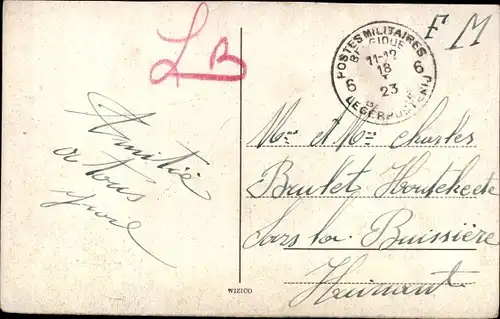 LB
F M
POSTES MILITAIRES
BELGIQUE
11-12
18
V
23
6 6
LEGERPOSTERIJ
Amitié
à tous
Mme et Mr Charles
Brulet
Sars la Buissière
Hainaut
WIZICO